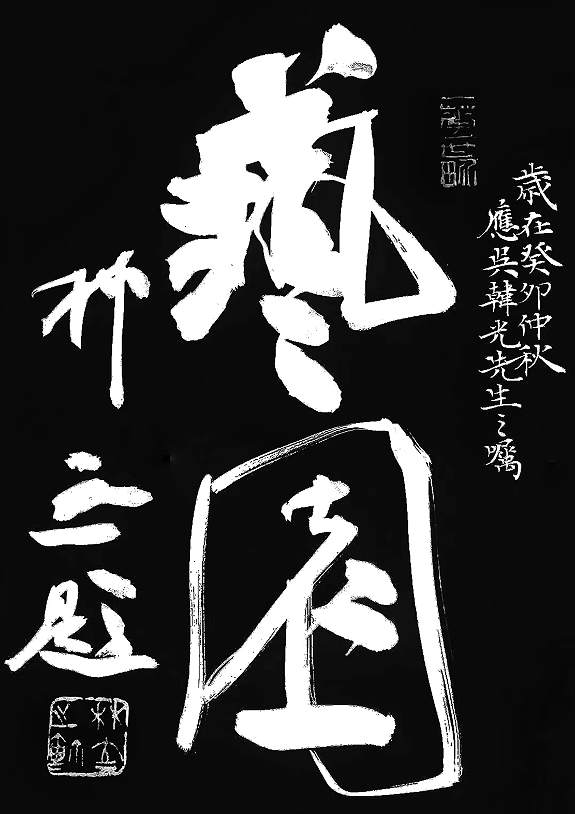 歲在癸卯仲秋
應吳韓光先生之囑
藝園
林立題